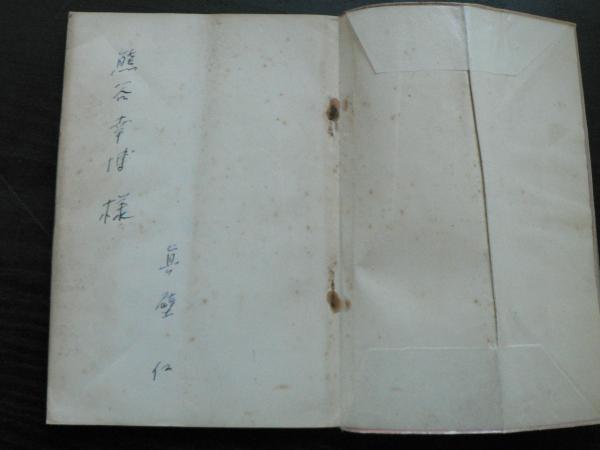 熊谷幸博様
真壁仁